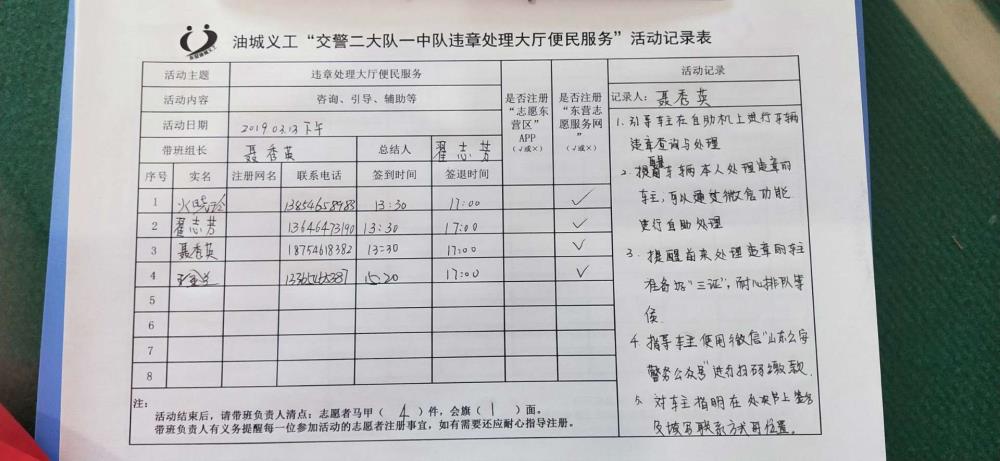 油城义工“交警二大队一中队违章处理大厅便民服务”活动记录表
活动主题 违章处理大厅便民服务
活动内容 咨询、引导、辅助等
活动日期 2019.03.13下午
带班组长 聂秀英 总结人 翟志芳
是否注册“志愿东营区”APP（√或×）
是否注册“东营志愿服务网”（√或×）
序号 实名 注册网名 联系电话 签到时间 签退时间
1 13854658988 13:30 17:00 √
2 翟志芳 13646473190 13:30 17:00 √
3 聂秀英 18754618382 13:30 17:00 √
4 15:20 17:00 √
5
6
7
8
注：
活动结束后，请带班负责人清点：志愿者马甲（4）件，会旗（1）面。
带班负责人有义务提醒每一位参加活动的志愿者注册事宜，如有需要还应耐心指导注册。
活动记录
记录人：聂秀英
1.引导车主在自助机上进行车辆
违章查询与处理
2.提醒车辆本人处理违章的
车主，可以通过微信功能
进行自助处理
3.提醒前来处理违章的车主
准备好“三证”，耐心排队等
候。
4.指导车主使用微信“山东公安
警务公众号”进行扫码缴款.
5.对车主指明在处决书上签名
及填写联系方式的位置。